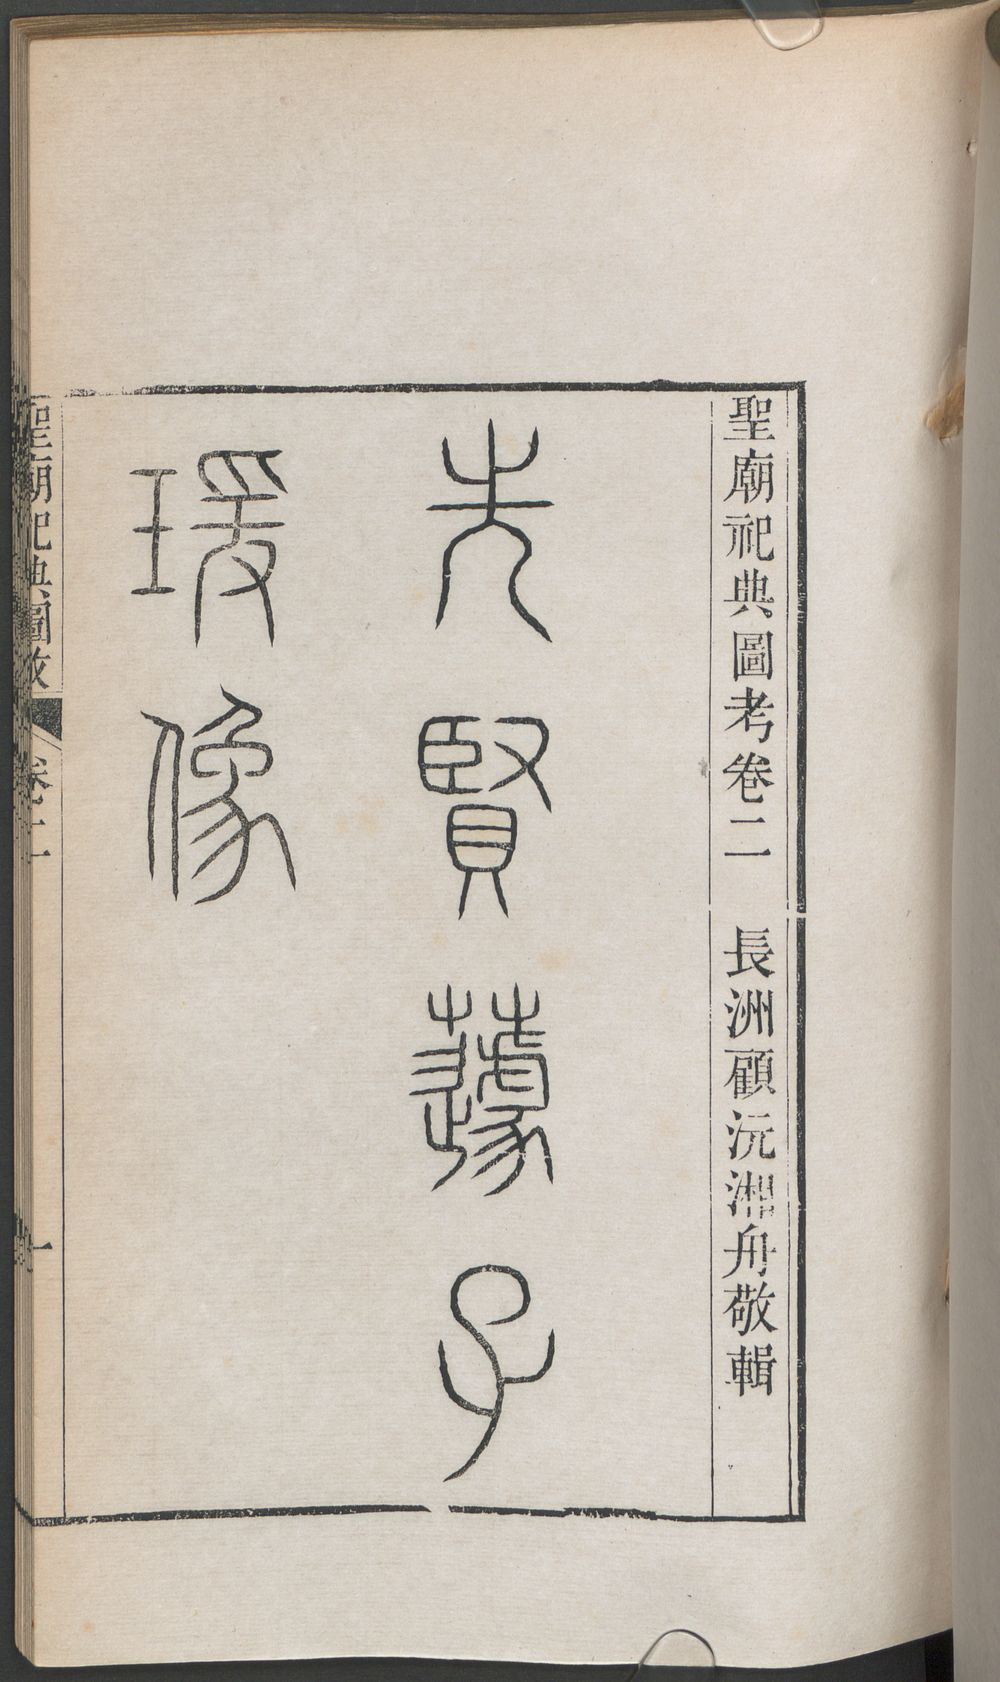 聖廟祀典圖考卷二 長洲顧沅湘舟敬輯
先賢蘧子
瑗像
聖廟祀典圖攷 卷二 一